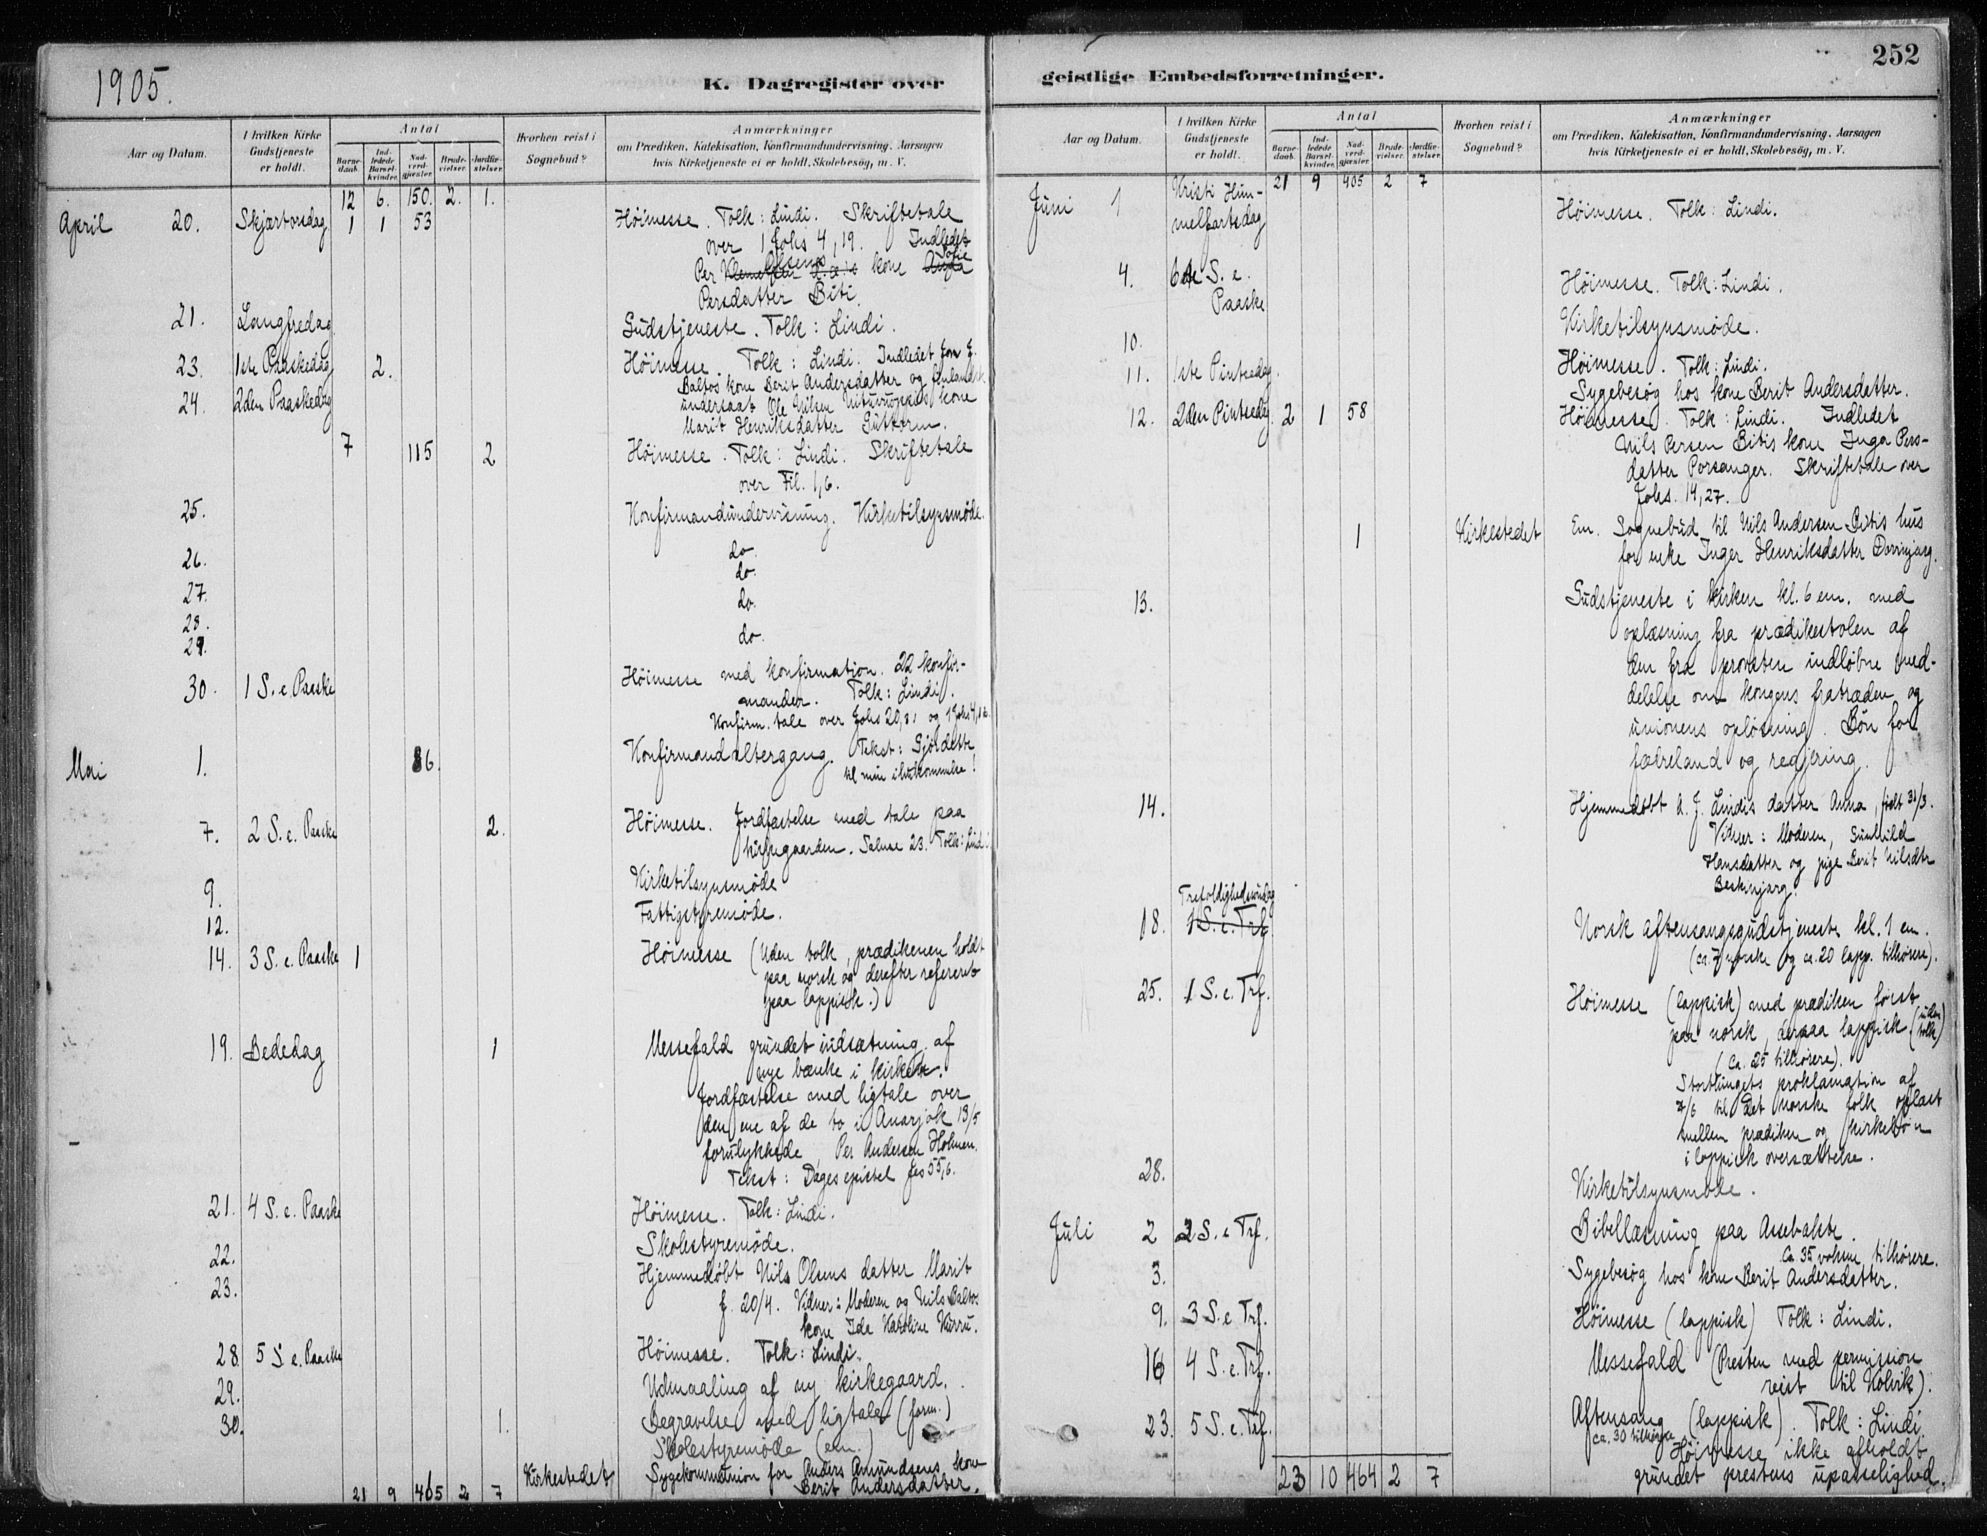 1905.
K. Dagregister over
Aar og Datum.
I hvilken Kirke Gudstjeneste er holdt.
Antal
Barnedaab.
Indledede Barselkvinder.
Nadverdgjæster.
Brudevielser.
Jordfæstelser.
Hvorhen reist i Sognebud?
Anmærkninger
om Prædiken, Katekisation, Konfirmandundervisning, Aarsagen
hvis Kirketjeneste ei er holdt, Skolebesög, m. V.
12 6. 150. 2. 1.
April 20. Skjærtorsdag 1 1 53 Höimesse. Tolk: Lindi. Skriftetale
over 1 Johs 4,19. Indledet
Per Olsens kone Sofie
Persdatter Biti.
21. Langfredag Gudstjeneste. Tolk: Lindi.
23. 1ste Paaskedag 2. Höimesse. Tolk: Lindi. Indledet
Baltos kone Berit Andersdatter og finlandsk
24. 2den Paaskedag undersaat Ole Nilsen kone
Marit Henriksdatter Guttorm.
7 115 2 Höimesse. Tolk: Lindi. Skriftetale
over Fil. 1,6.
25. Konfirmandundervisning. Kirketilsynsmöde.
26. do.
do.
27. do.
28.
29. do.
30. 1 S. e. Paaske Höimesse med konfirmation. 22 konfir-
mander. Tolk: Lindi.
Konfirm. tale over Johs 20,31 og 1 Johs 4,16.
Mai 1. 36. Konfirmandaltergang. Tekst: Gjör dette
til min ihukommelse!
7. 2 S. e. Paaske 2. Höimesse. Jordfæstelse med tale paa
kirkegaarden. Salme 23. Tolk: Lindi.
9. Kirketilsynsmöde
12. Fattigstyremöde.
14. 3 S. e. Paaske 1 Höimesse (Uden tolk, prædikenen holdt
paa norsk og derefter refereret
paa lappisk.)
19. Bededag 1 Messefald grundet indsætning af
nye bænke i kirken.
Jordfæstelse med ligtale over
den ene af de to i Anarjok 13/5
forulykkede, Per Andersen Holmen.
Tekst: Dages epistel Jes 55,6.
21. 4 S. e. Paaske Höimesse. Tolk: Lindi.
22. Skolestyremöde.
23. Hjemmedöbt Nils Olsens datter Marit
f. 20/4. Vidner: Moderen og Nils Baltos
kone Ide Karoline Kirru.
28 5 S. e. Paaske Höimesse. Tolk: Lindi.
29. Udmaaling af ny kirkegaard.
30. 1. Begravelse med ligtale (form.)
Skolestyremöde (em.)
Kirkestedet Sygekommunion for Anders Amundsens kone
21 9 405 2 7 Berit Andersdatter.
252
geistlige Embedsforretninger.
Aar og Datum.
I hvilken Kirke Gudstjeneste er holdt.
Antal
Barnedaab.
Indledede Barselkvinder.
Nadverdgjæster.
Brudevielser.
Jordfæstelser.
Hvorhen reist i Sognebud?
Anmærkninger
om Prædiken, Katekisation, Konfirmandundervisning, Aarsagen
hvis Kirketjeneste ei er holdt, Skolebesög, m. V.
21 9 405 2 7
Juni 1 Kristi Him- Höimesse. Tolk: Lindi.
melfartsdag
4. 6te S. e. Höimesse. Tolk: Lindi.
Paaske
10. Kirketilsynsmöde.
11. 1ste Pintsedag. Höimesse. Tolk: Lindi.
Sygebesög hos kone Berit Andersdatter.
12. 2den Pintsedag. 2 1 58 Höimesse. Tolk: Lindi. Indledet
Nils Persen Bitis kone Inga Pers-
datter Porsanger. Skriftetale over
Johs. 14,27.
1 Kirkestedet Em. Sognebud til Nils Andersen Bitis hus
for enke Inger Henriksdatter
13. Gudstjeneste i kirken kl. 6 em. med
oplæsning fra prædikestolen af
den fra provsten indløbne med-
delelse om kongens fratræden og
unionens oplösning. Bön for
fædreland og regjering.
14. Hjemmedöbt A. J. Lindis datter Anna, födt 31/3.
Vidner: Moderen, Gunhild
Hansdatter og pige Berit Nilsdtr
Beskenjarg.
Trefoldighedssöndag
18. 1 S. e. Trf Norsk aftensangsgudstjeneste kl. 1 em.
(ca. 7 norske og ca. 20 lapp. tilhörere).
25. 1 S. e. Trf. Höimesse (lappisk) med prædiken först
paa norsk, derpaa lappisk (uden tolk)
(ca. 25 tilhörere).
Storthingets proklamation af
7/6 til det norske folk oplæst
mellem prædiken og kirkebön
i lappisk oversættelse.
28. Kirketilsynsmöde.
Juli 2 2 S. e Trf. Bibellæsning paa Assebakte.
Ca 35 voksne tilhörere.
3. Sygebesög hos kone Berit Andersdatter.
9. 3 S. e Trf. Höimesse (lappisk) Tolk: Lindi.
16 4 S. e. Trf. Messefald (Presten med permission
reist til Kolvik).
23. 5 S. e. Trf. Aftensang (lappisk). Tolk: Lindi.
ca. 30 tilhörere
Höimesse ikke afholdt
23 10 464 2 7 grundet prestens upasselighed.